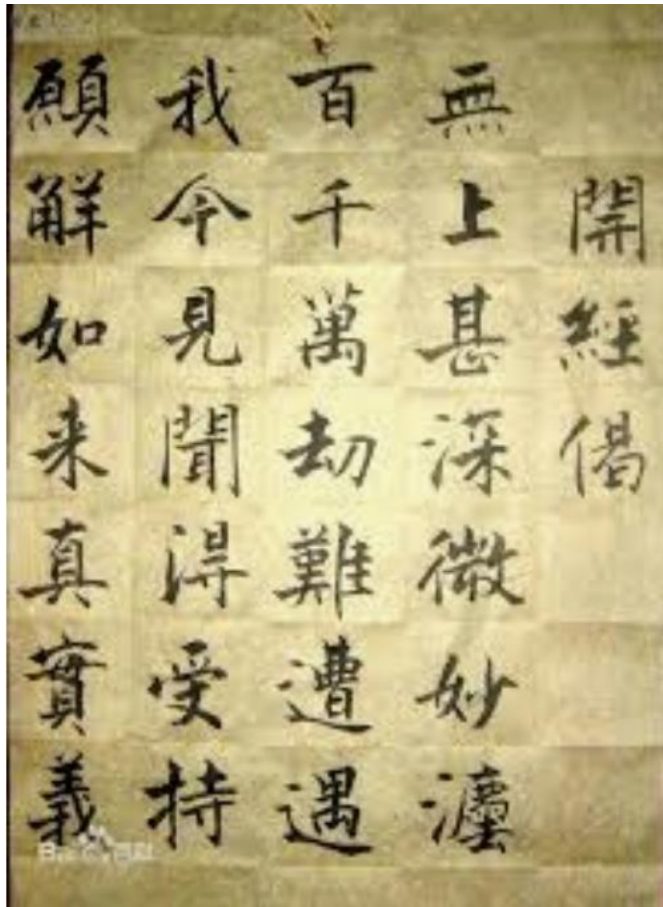 開經偈
無上甚深微妙灋
百千萬劫難遭遇
我今見聞得受持
願解如来真實義
Bai 百科